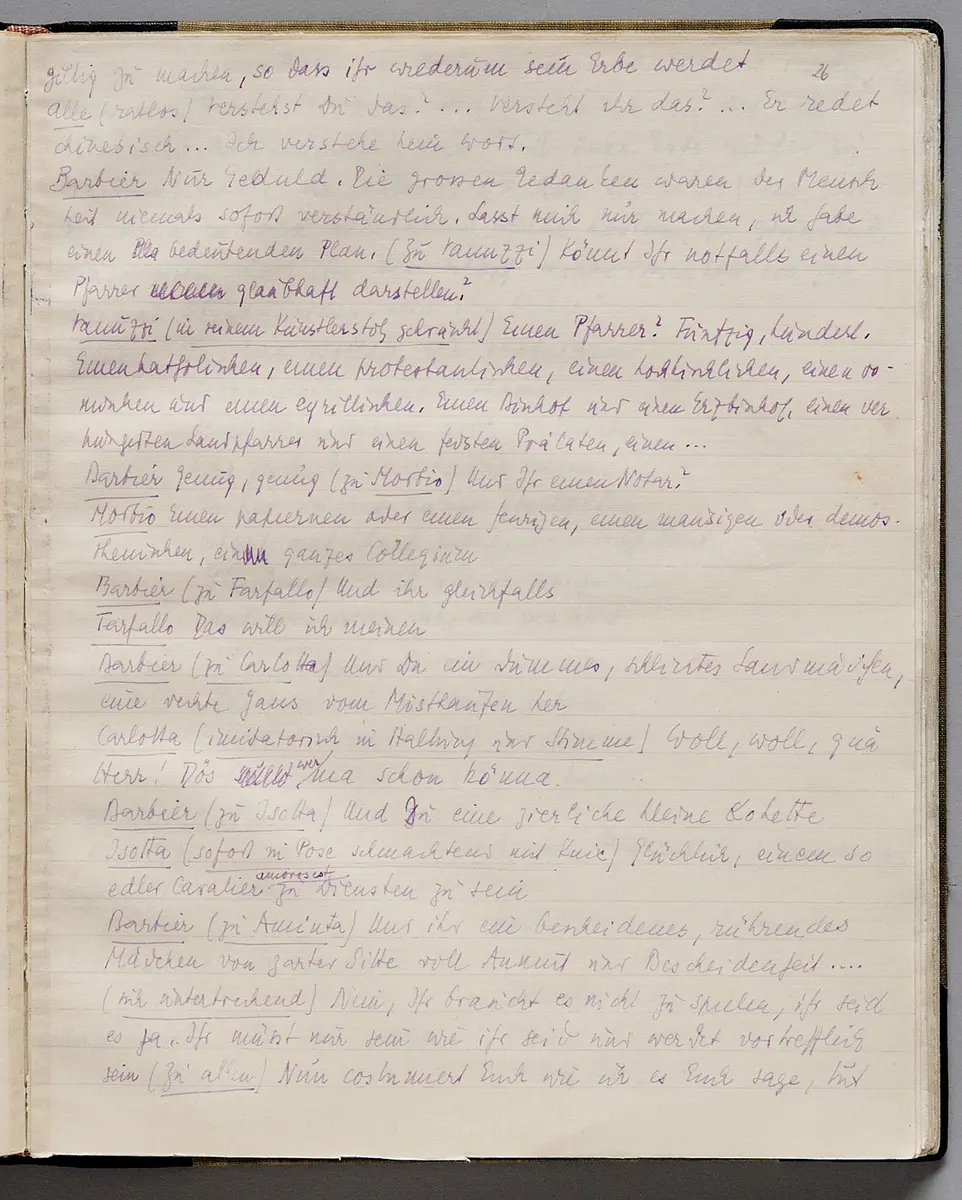 giltig zu machen, so dass ihr wiederum sein Erbe werdet 26
Alle (ratlos) Verstehst Du das? ... Versteht ihr das? ... Er redet
chinesisch ... Ich verstehe kein Wort.
Barbier Nur Geduld. Die grossen Gedanken waren der Mensch
heit niemals sofort verständlich. Lasst mich nur machen, ich habe
einen bedeutenden Plan. (Zu Vanuzzi) Könnt Ihr notfalls einen
Pfarrer glaubhaft darstellen?
Vanuzzi (in seinem Künstlerstolz gekränkt) Einen Pfarrer? Fünfzig, hundert.
Einen katholischen, einen protestantischen, einen hochkirchlichen, einen rö-
mischen und einen cyrillischen. Einen Bischof und einen Erzbischof, einen ver
hungerten Landpfarrer und einen feisten Prälaten, einen ...
Barbier Genug, genug (zu Morbio) Und Ihr einen Notar?
Morbio Einen papiernen oder einen feurigen, einen mausigen oder demos-
thenischen, ein ganzes Collegium
Barbier (zu Farfallo) Und ihr gleichfalls
Farfallo Das will ich meinen
Barbier (zu Carlotta) Und Du ein dummes, schlichtes Landmädchen,
eine rechte Gans vom Misthaufen her
Carlotta (imitatorisch in Haltung und Stimme) Woll, woll, gnä
Herr! Dös wer ma schon könna.
Barbier (zu Isotta) Und Du eine zierliche kleine Kokette
Isotta (sofort in Pose schmachtend mit Knix) Glücklich, einem so
edler Cavalier zu Diensten zu sein
Barbier (zu Aminta) Und ihr ein bescheidenes, rührendes
Mädchen von zarter Sitte voll Anmut und Bescheidenheit ....
(sich unterbrechend) Nein, Ihr braucht es nicht zu spielen, ihr seid
es ja. Ihr müsst nur sein wie ihr seid und werdet vortrefflich
sein (Zu allen) Nun costumiert Euch wie ich es Euch sage, tut